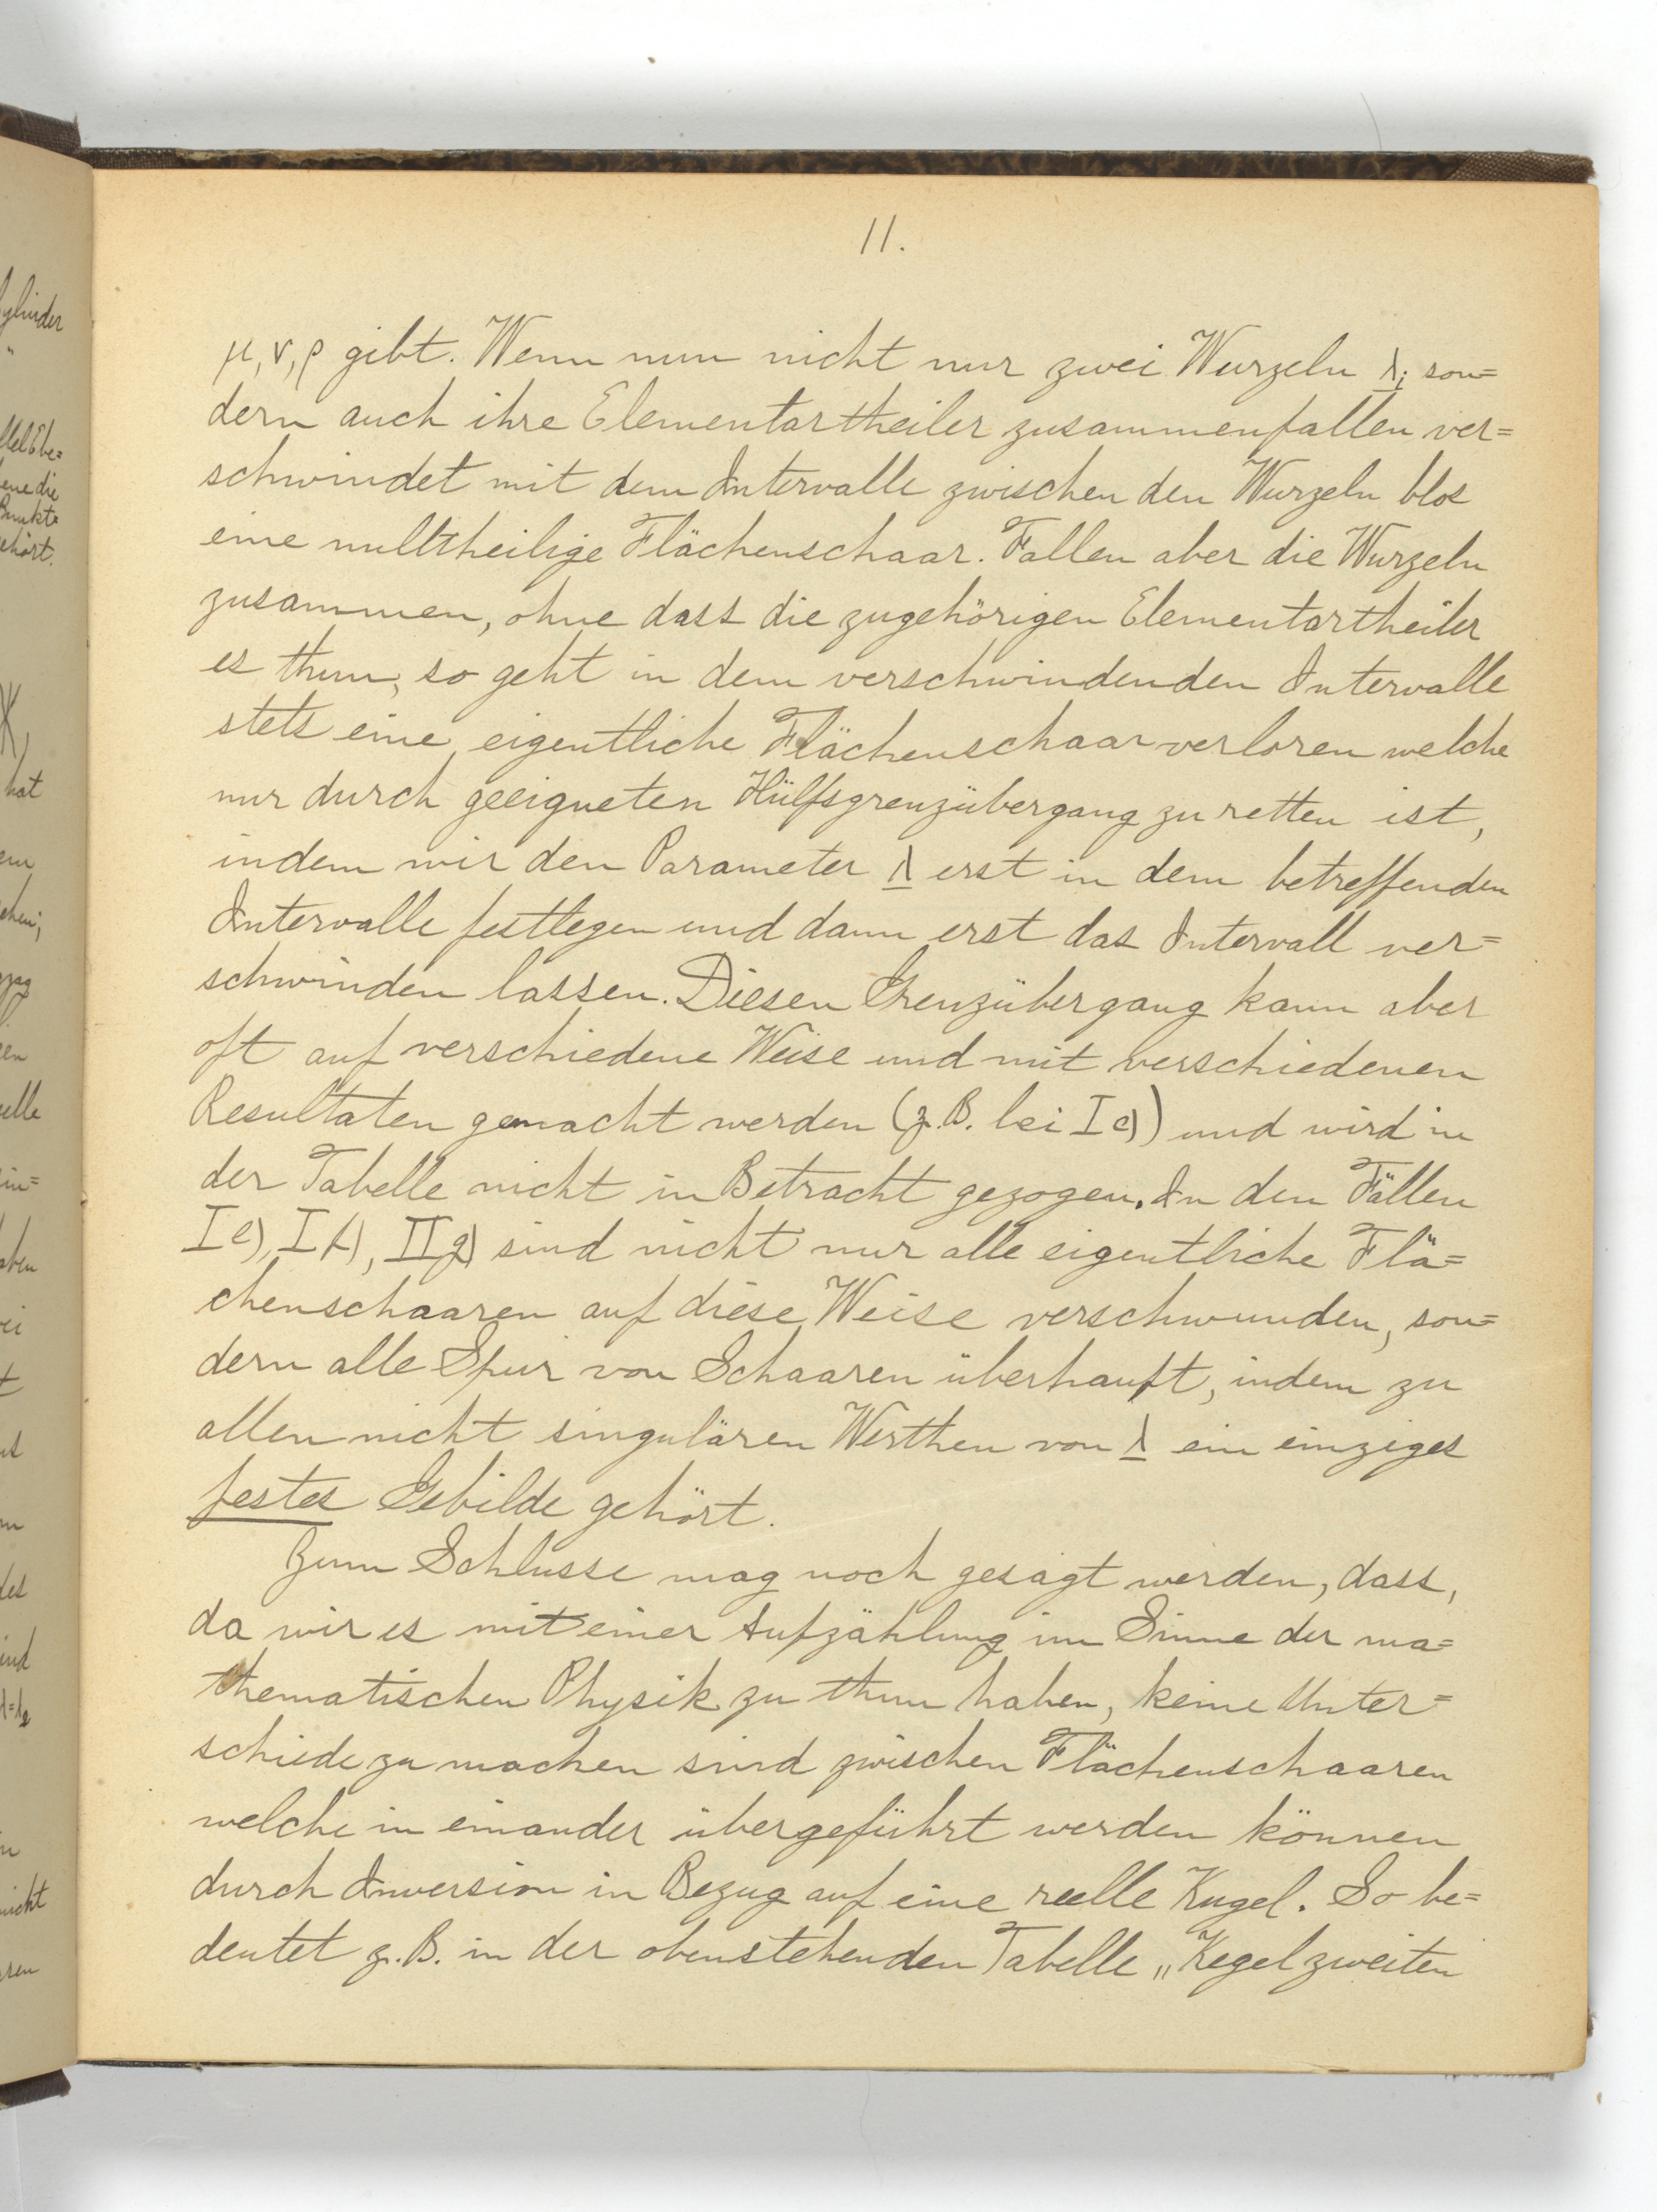 11.
μ, ν, ρ gibt. Wenn nun nicht nur zwei Wurzeln λi son=
dern auch ihre Elementartheiler zusammenfallen ver=
schwindet mit dem Intervalle zwischen den Wurzeln blos
eine nulltheilige Flächenschaar. Fallen aber die Wurzeln
zusammen, ohne dass die zugehörigen Elementartheiler
es thun, so geht in dem verschwindenden Intervalle
stets eine eigentliche Flächenschaar verloren welche
nur durch geeigneten Hülfsgrenzübergang zu retten ist,
indem wir den Parameter λ erst in dem betreffenden
Intervalle festlegen und dann erst das Intervall ver=
schwinden lassen. Diesen Grenzübergang kann aber
oft auf verschiedene Weise und mit verschiedenen
Resultaten gemacht werden (z.B. bei I c)) und wird in
der Tabelle nicht in Betracht gezogen. In den Fällen
I e), I f), II g) sind nicht nur alle eigentliche Flä=
chenschaaren auf diese Weise verschwunden, son=
dern alle Spur von Schaaren überhaupt, indem zu
allen nicht singulären Werthen von λ ein einziges
festes Gebilde gehört.
Zum Schlusse mag noch gesagt werden, dass,
da wir es mit einer Aufzählung im Sinne der ma=
thematischen Physik zu thun haben, keine Unter=
schiede zu machen sind zwischen Flächenschaaren
welche in einander übergeführt werden können
durch Inversion in Bezug auf eine reelle Kugel. So be=
deutet z.B. in der obenstehenden Tabelle „Kegel zweiten